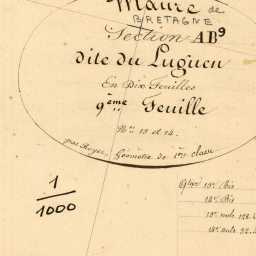 Maure de
BRETAGNE
Section AB9
dite du Luguen
En Dix Feuilles
9ème Feuille
Nos 13 et 14.
par Royer, Géomètre de 1ère classe
1
1000
13e Bis
14e Bis
13e
14e